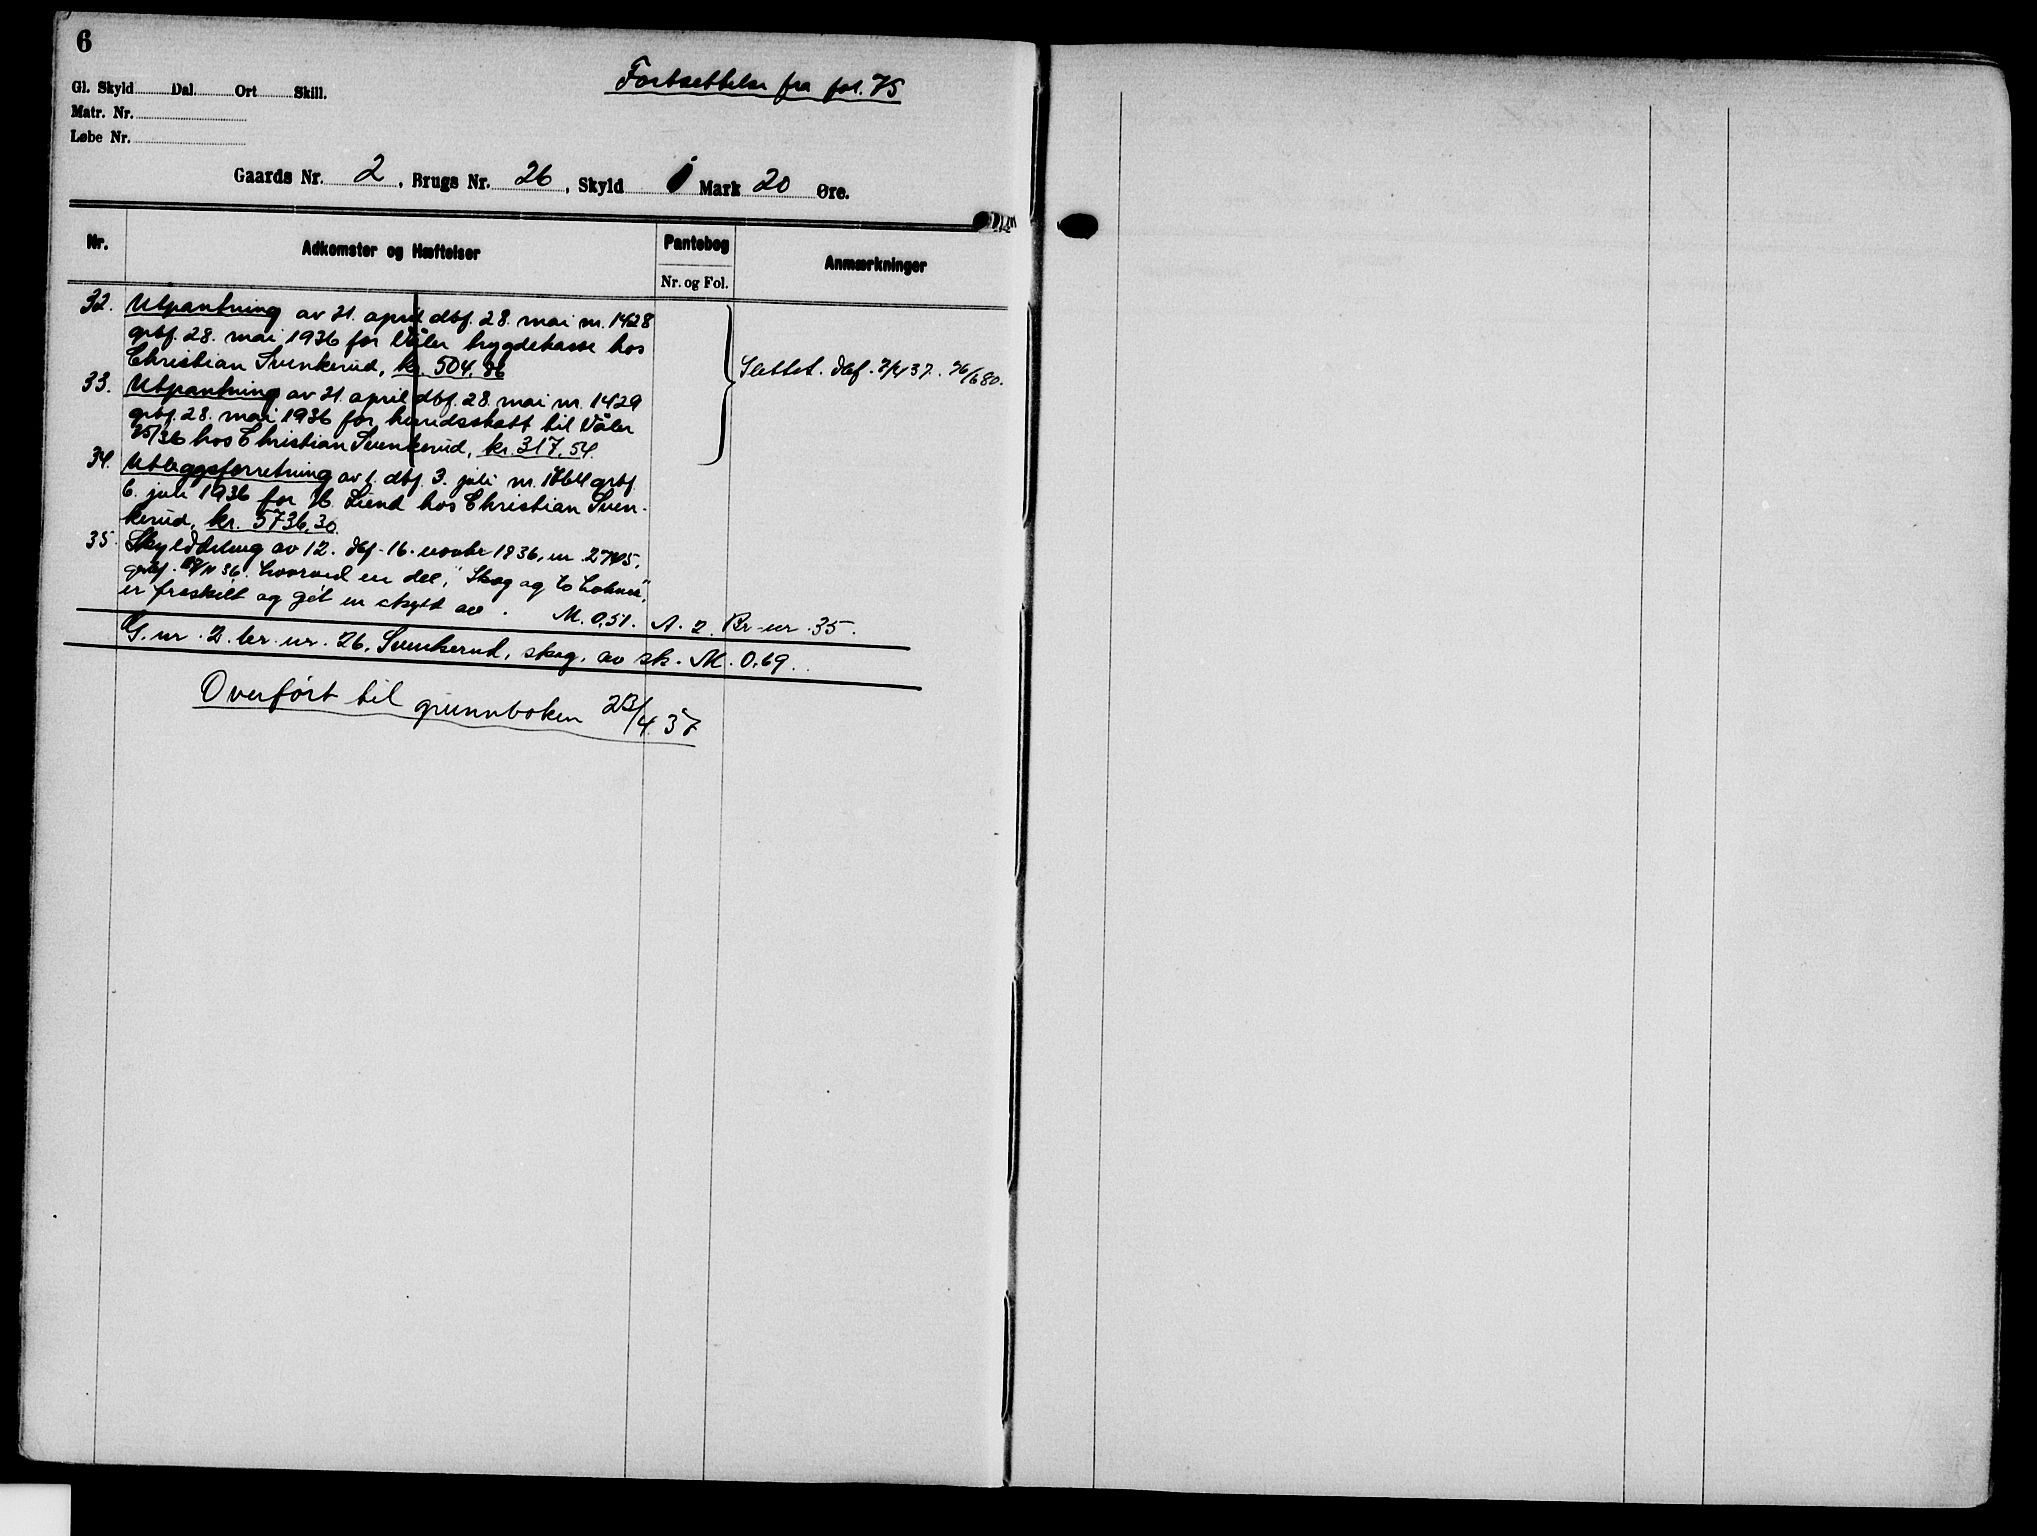 6
Fortsettelse fra fol. 75
Gl. Skyld Dal. Ort Skill.
Matr. Nr.
Løbe Nr.
Gaards Nr. 2, Brugs Nr. 26, Skyld 1 Mark 20 Øre.
Nr. Adkomster og Hæftelser Pantebog Anmærkninger
Nr. og Fol.
32. Utpantning av 21. april dbf. 28. mai nr. 1428
grbf. 28. mai 1936 for Våler bygdekasse hos
Christian Svenkerud, kr. 504,86
Slettet. dbf. 2/4 37. 76/680.
33. Utpantning av 21. april dbf. 28. mai nr. 1429
grbf. 28. mai 1936 for hundsskatt til Våler
35/36 hos Christian Svenkerud, kr. 317,54.
34. Utleggsforretning av 1. dbf. 3. juli nr. 1864 grbf.
6. juli 1936 for Liend hos Christian Sven-
kerud, kr. 5736,30
35. Skylddeling av 12. dbf. 16. novbr 1936, nr. 2745,
grbf. 36. hvorved en del, "Skog og
er fraskilt og gitt en skyld av. M. 0,51. A. 2. Br. nr. 35.
G. nr. 2. br. nr. 26, Svenkerud, skog, av sk. M. 0,69.
Overført til grunnboken 23/4.37